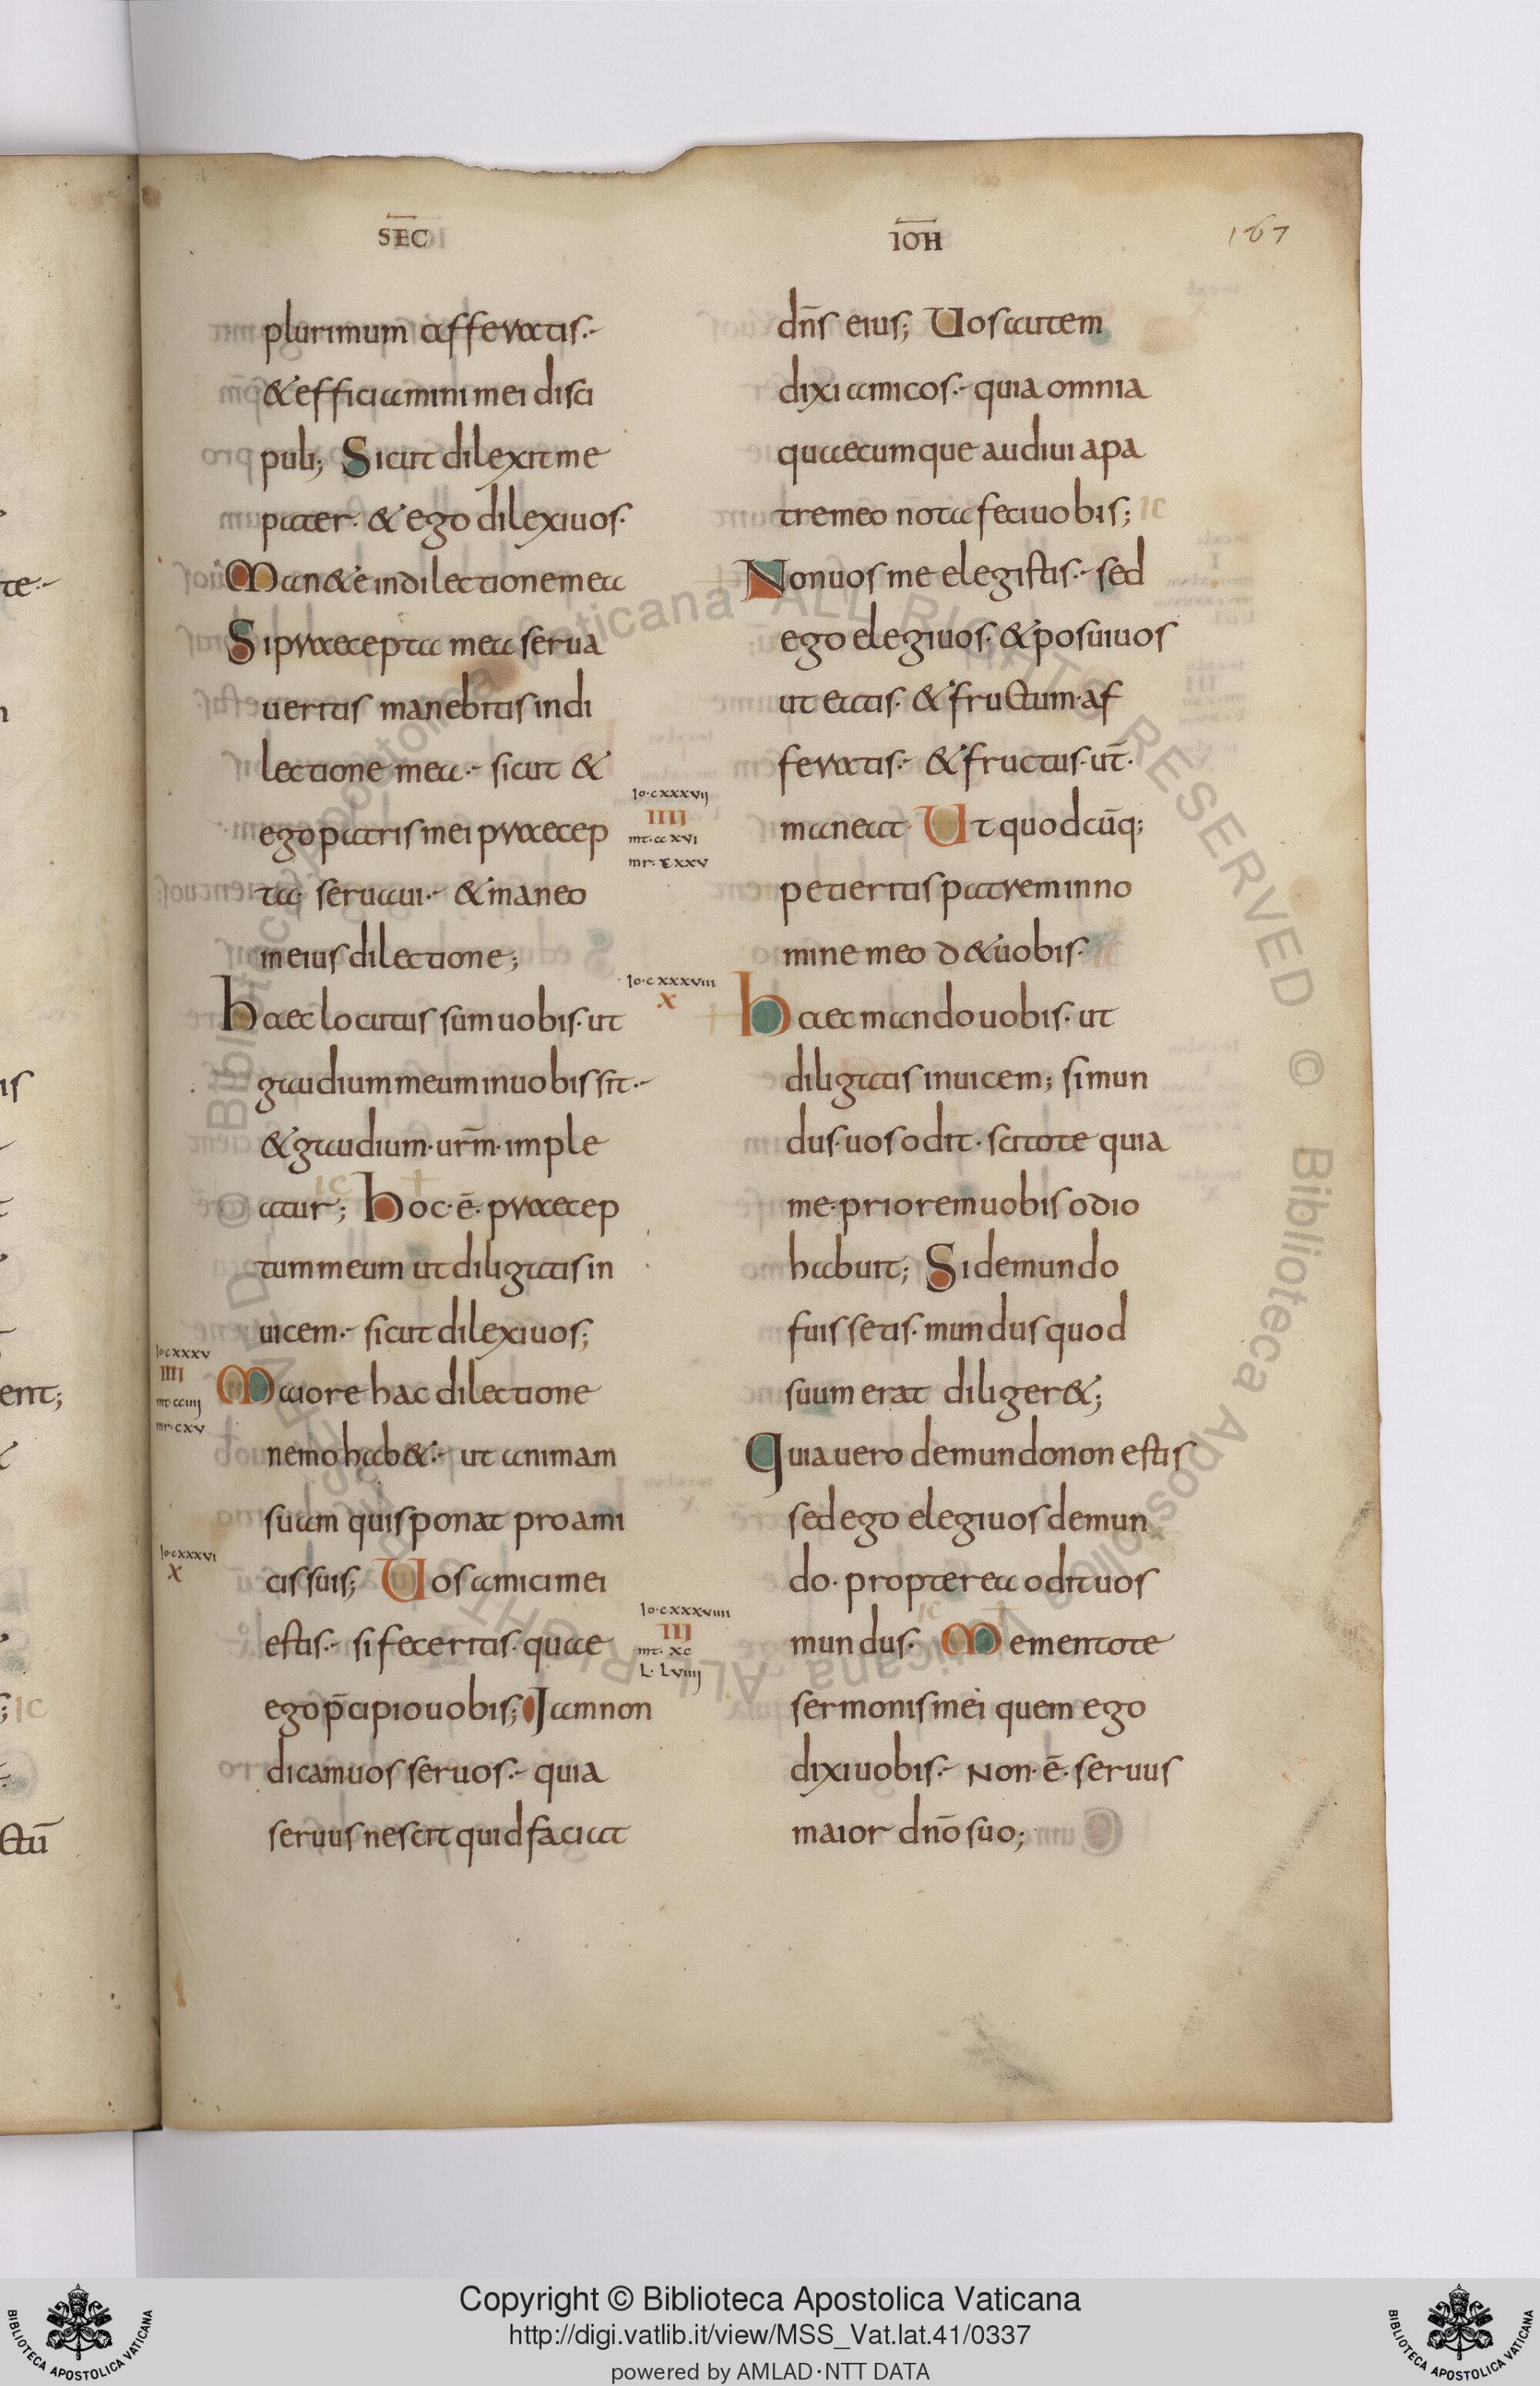 SEC
IOH
167
plurimum afferatis.
& efficiamini mei disci
puli; Sicut dilexit me
pater. & ego dilexi uos.
Man&e in dilectione mea
Si praecepta mea serua
ueritis manebitis in di
lectione mea. sicut &
ego patris mei praecep
ta seruaui. & maneo
in eius dilectione;
haec locutus sum uobis. ut
gaudium meum in uobis sit.
& gaudium. urm̄. imple
atur; hoc. ē. praecep
tum meum ut diligatis in
uicem. sicut dilexi uos;
Maiore hac dilectione
nemo hab&. ut animam
suam quis ponat pro ami
cis suis; Uos amici mei
estis. si feceritis. quae
ego p̄cipio uobis; Iam non
dicam uos seruos. quia
seruus nescit quid faciat
Io.cxxxv
IIII
mt.cciiij
mr.cxv
Io.cxxxvi
X
Io.cxxxvij
IIII
mt.ccxvi
mr.cxxv
Io.cxxxviii
X
Io.cxxxviiii
III
mt. xc
L. Lviiij
dn̄s eius; Uos autem
dixi amicos. quia omnia
quaecumque audiui a pa
tre meo nota feci uobis;
Non uos me elegistis. sed
ego elegi uos. & posui uos
ut eatis. & fructum. af
feratis. & fructus. ur̄.
maneat. Ut quodcūq;
petieritis patrem in no
mine meo d&uobis.
haec mando uobis. ut
diligatis inuicem; si mun
dus. uos odit. scitote quia
me. priorem uobis odio
habuit; Si de mundo
fuissetis. mundus quod
suum erat diliger&;
Quia uero de mundo non estis
sed ego elegi uos de mun
do. propterea odit uos
mundus. Mementote
sermonis mei quem ego
dixi uobis. Non. ē. seruus
maior dn̄o suo;
Copyright © Biblioteca Apostolica Vaticana
http://digi.vatlib.it/view/MSS_Vat.lat.41/0337
powered by AMLAD·NTT DATA